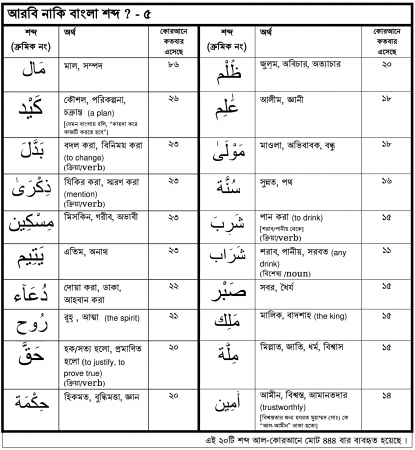 আরবি নাকি বাংলা শব্দ ? - ৫
শব্দ (ক্রমিক নং) অর্থ কোরআনে কতবার এসেছে শব্দ (ক্রমিক নং) অর্থ কোরআনে কতবার এসেছে
مَال মাল, সম্পদ ৮৬
ظُلْم জুলুম, অবিচার, অত্যাচার ২০
كَيْد কৌশল, পরিকল্পনা, চক্রান্ত (a plan) ২৬
[যেমন বাংলায় বলি, "কায়দা করে কাজটি করতে হবে"]
عَٰلِم আলীম, জ্ঞানী ১৮
بَدَّلَ বদল করা, বিনিময় করা (to change) (ক্রিয়া/verb) ২৩
مَوْلَىٰ মাওলা, অভিবাবক, বন্ধু ১৮
ذِكْرَىٰ যিকির করা, স্মরণ করা (mention) (ক্রিয়া/verb) ২৩
سُنَّة সুন্নত, পথ ১৬
مِسْكِين মিসকিন, গরীব, অভাবী ২৩
شَرِبَ পান করা (to drink) ১৫
[শরাব/পানীয় থেকে] (ক্রিয়া/verb)
يَتِيم এতিম, অনাথ ২৩
شَرَاب শরাব, পানীয়, সরবত (any drink) (বিশেষ্য /noun) ১১
دُعَآء দোয়া করা, ডাকা, আহবান করা ২২
صَبْر সবর, ধৈর্য ১৫
رُوح রুহু , আত্মা (the spirit) ২১
مَلِك মালিক, বাদশাহ (the king) ১৫
حَقَّ হক/সত্য হলো, প্রমাণিত হলো (to justify, to prove true) (ক্রিয়া/verb) ২০
مِلَّة মিল্লাত, জাতি, ধর্ম, বিশ্বাস ১৫
حِكْمَة হিকমত, বুদ্ধিমত্তা, জ্ঞান ২০
أَمِين আমীন, বিশ্বস্ত, আমানতদার (trustworthly) ১৪
[বিশ্বস্ততার জন্য হযরত মুহাম্মদ (সাঃ) কে "আল-আমীন" ডাকা হতো]
এই ২০টি শব্দ আল-কোরআনে মোট 444 বার ব্যবহৃত হয়েছে ।